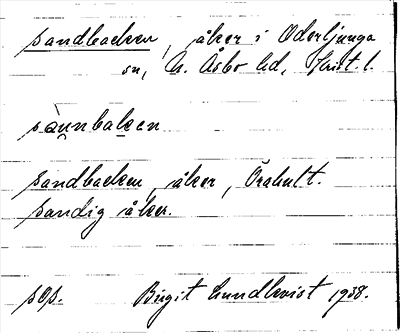 sandbacken, åker i Oderljunga
sn, N. Åsbo hd, Krist. l.
sànnbakən
sandbacken, åker, Örahult.
sandig åker.
sOp. Birgit Lundkvist 1938.